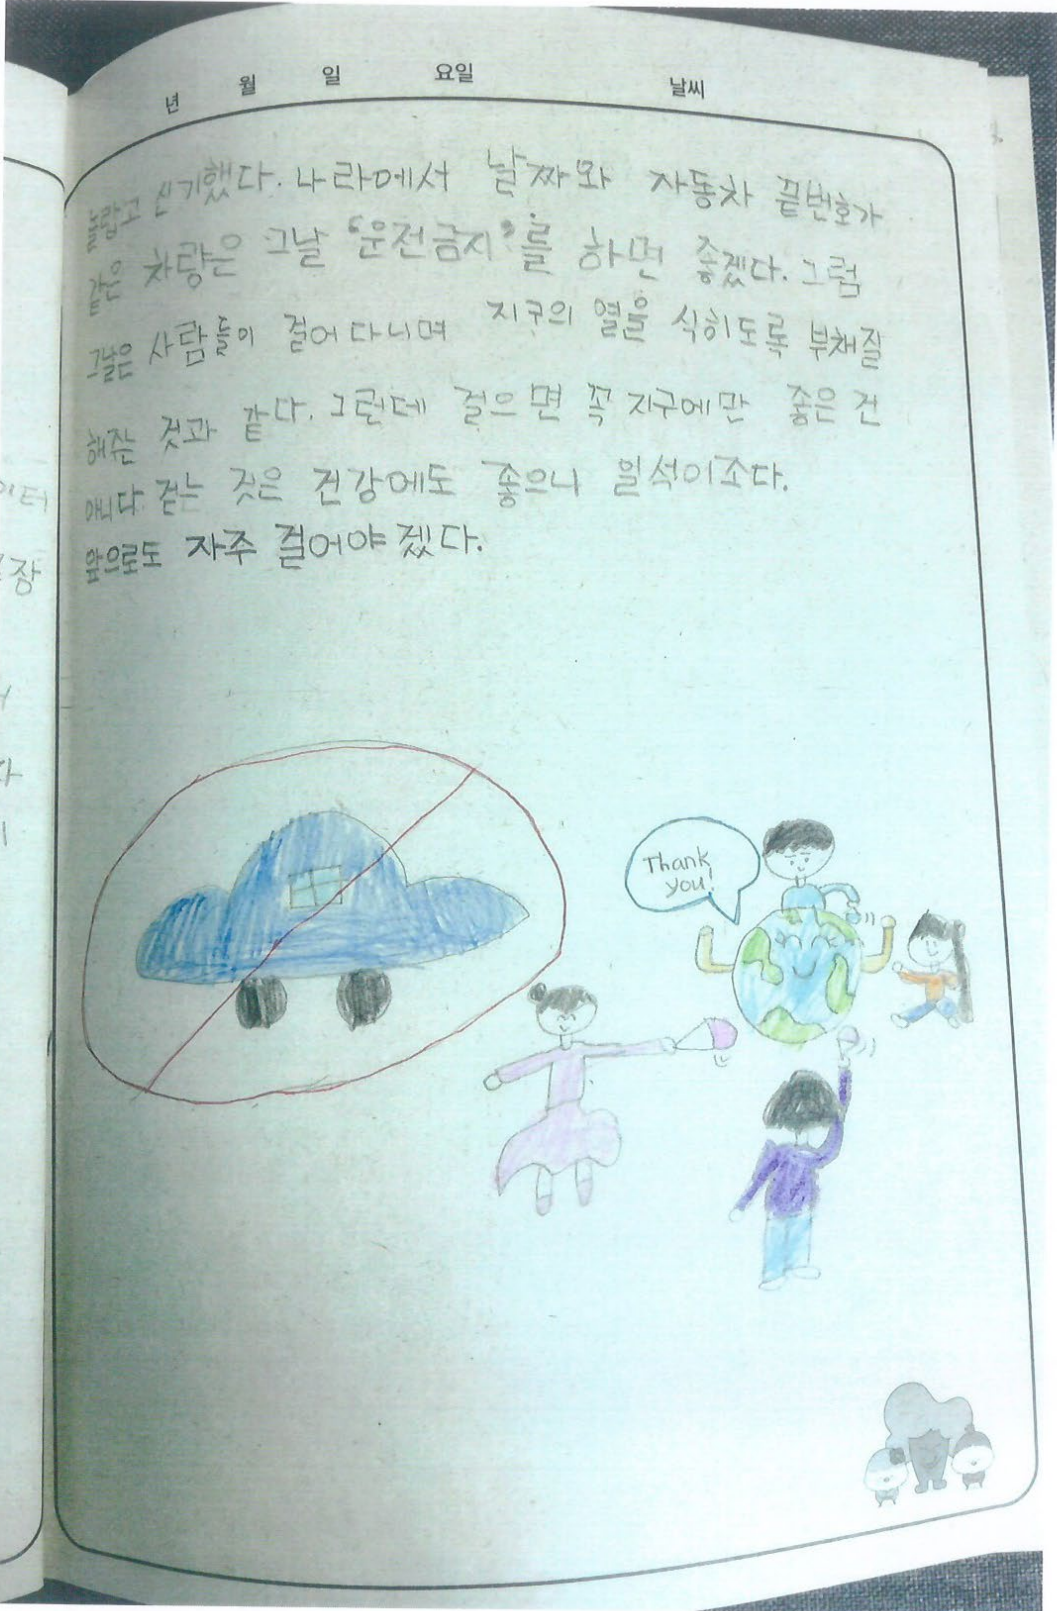 년 월 일 요일 날씨
놀랍고 신기했다. 나라에서 날짜와 자동차 끝번호가
같은 차량은 그날 "운전금지"를 하면 좋겠다. 그럼
그날은 사람들이 걸어 다니며 지구의 열을 식히도록 부채질
해주는 것과 같다. 그런데 걸으면 꼭 지구에만 좋은 건
아니다. 걷는 것은 건강에도 좋으니 일석이조다.
앞으로도 자주 걸어야 겠다.
이터
장
Thank
you!